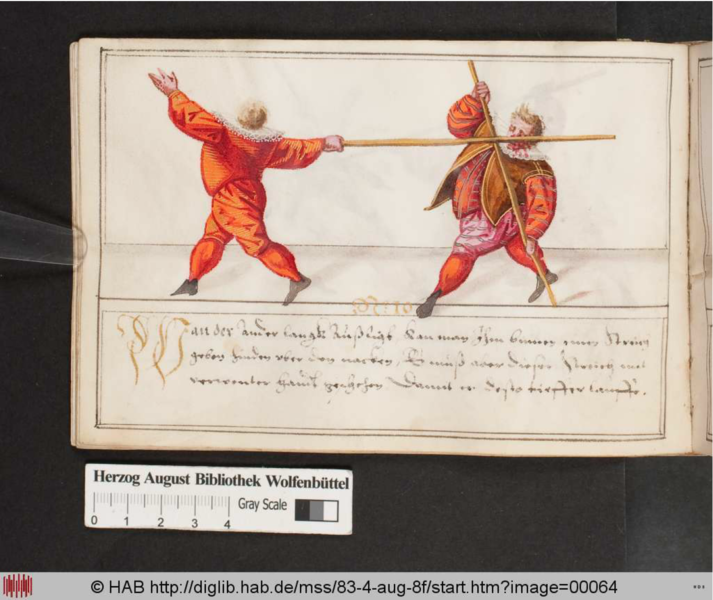 No: 10
Wan der ander langk Außligt, kan man Ihm binnen einen Streich
geben hinden vber den nacken, Es muß aber dieser Streich mit
verwenter handt geschehen, Damit er desto
Herzog August Bibliothek Wolfenbüttel
Gray Scale
0 1 2 3 4
© HAB http://diglib.hab.de/mss/83-4-aug-8f/start.htm?image=00064